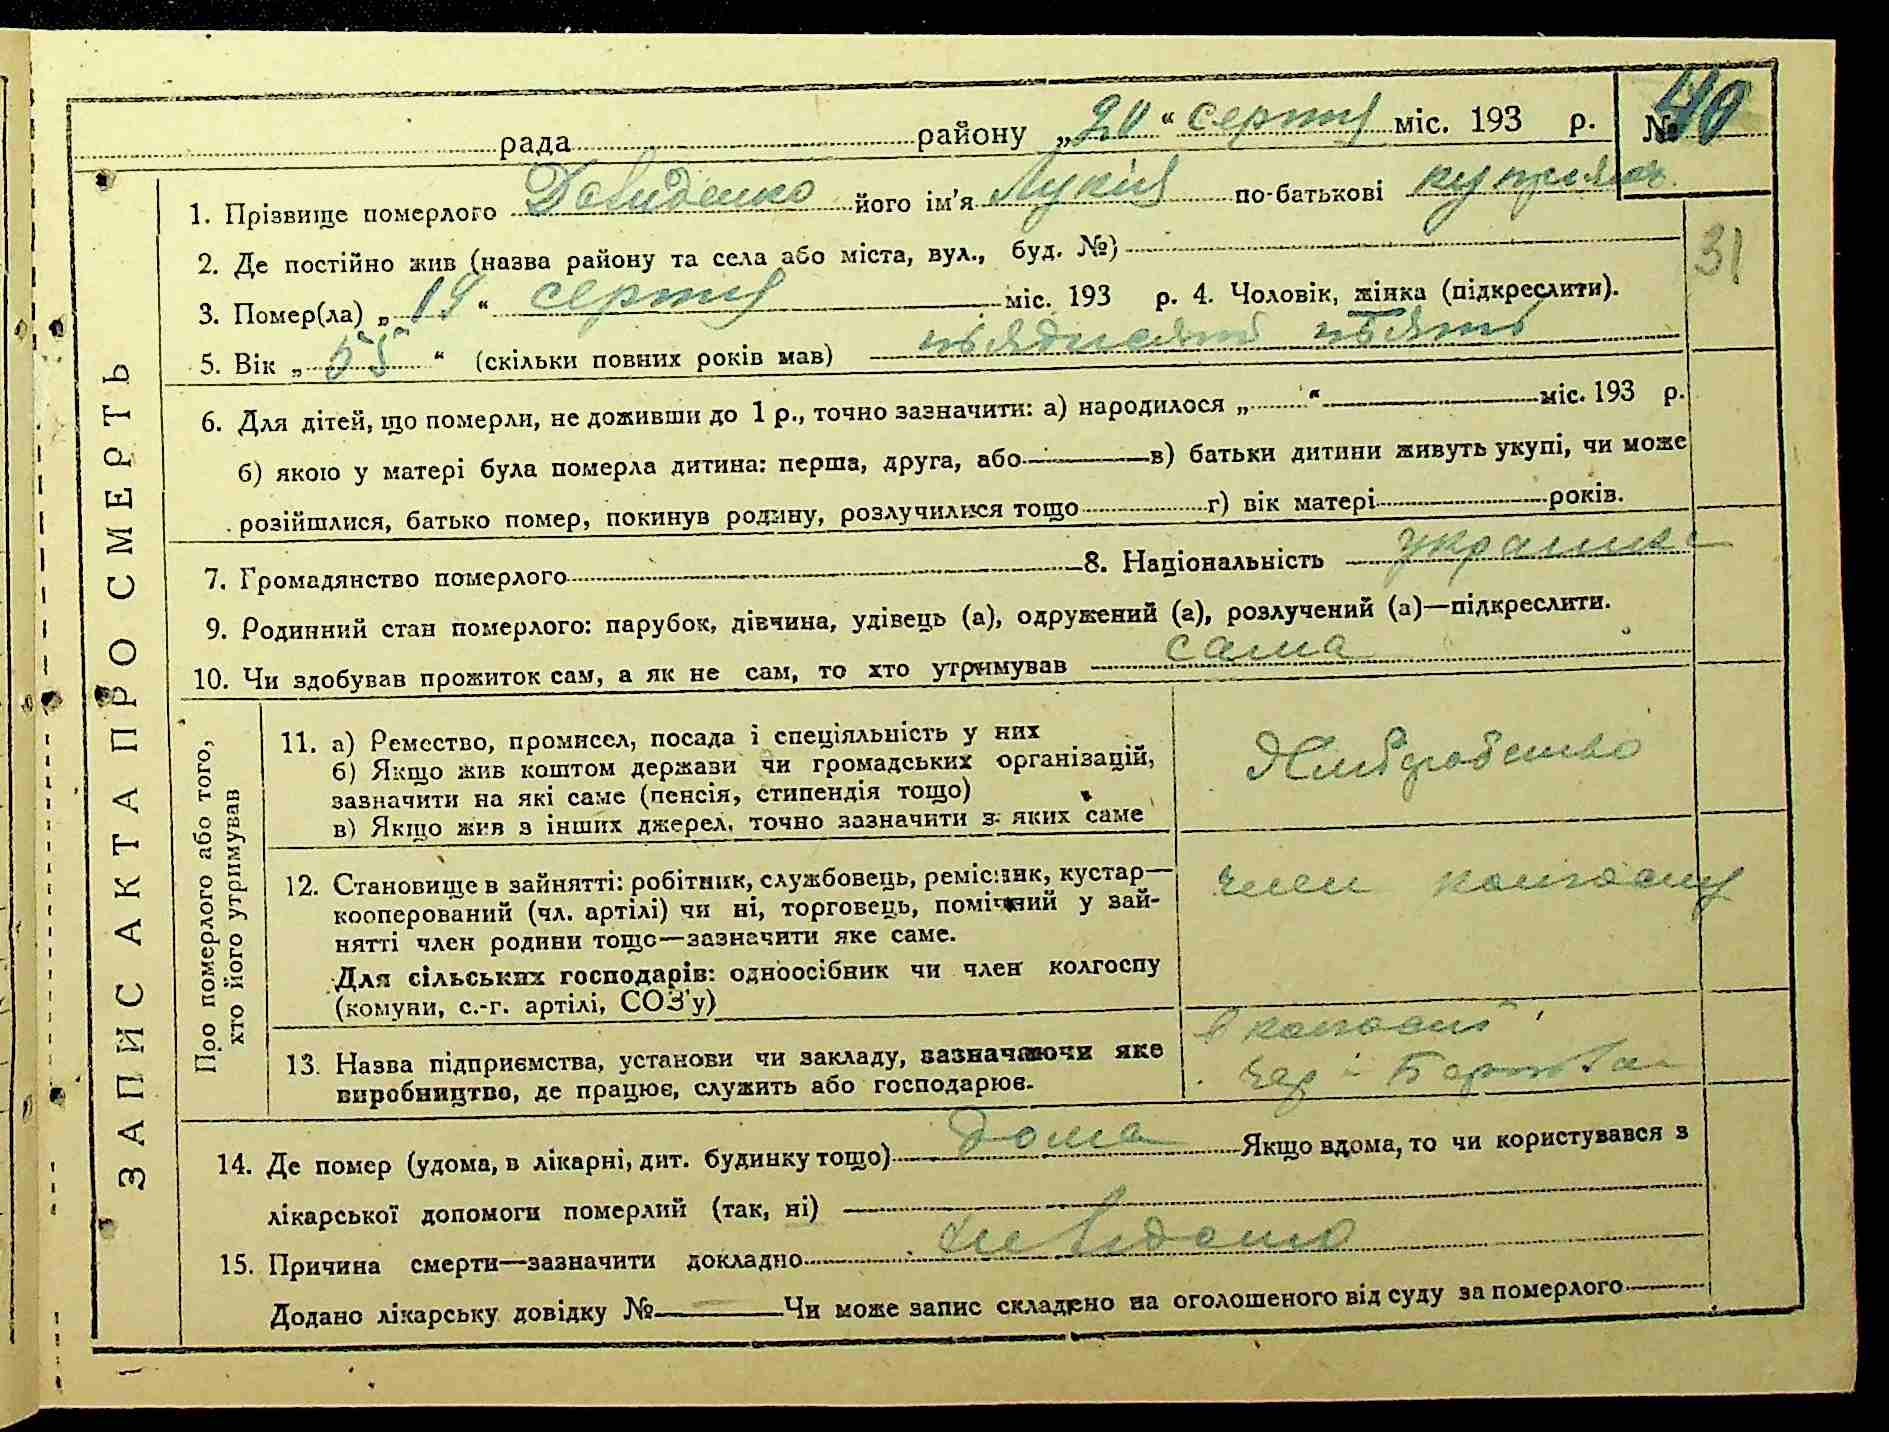 рада району „20“ серпня міс. 193 р. № 40
1. Прізвище померлого Давиденко його ім'я Лукія по-батькові
31
2. Де постійно жив (назва району та села або міста, вул., буд. №)
3. Помер(ла) „19“ серпня міс. 193 р. 4. Чоловік, жінка (підкреслити).
5. Вік „55“ (скільки повних років мав) пьядисят пьять
6. Для дітей, що померли, не доживши до 1 р., точно зазначити: а) народилося „ “ міс. 193 р.
б) якою у матері була померла дитина: перша, друга, або в) батьки дитини живуть укупі, чи може
розійшлися, батько помер, покинув родину, розлучилися тощо г) вік матері років.
7. Громадянство померлого 8. Національність украинка
9. Родинний стан померлого: парубок, дівчина, удівець (а), одружений (а), розлучений (а)—підкреслити.
10. Чи здобував прожиток сам, а як не сам, то хто утримував сама
ЗАПИС АКТА ПРО СМЕРТЬ
Про померлого або того,
хто його утримував
11. а) Ремество, промисел, посада і спеціяльність у них
б) Якщо жив коштом держави чи громадських організацій,
зазначити на які саме (пенсія, стипендія тощо)
в) Якщо жив з інших джерел, точно зазначити з яких саме
Хліборобство
12. Становище в зайнятті: робітник, службовець, ремісник, кустар—
кооперований (чл. артілі) чи ні, торговець, помічний у зай-
нятті член родини тощо—зазначити яке саме.
Для сільських господарів: одноосібник чи член колгоспу
(комуни, с.-г. артілі, СОЗ'у)
член колгоспу
13. Назва підприємства, установи чи закладу, зазначаючи яке
виробництво, де працює, служить або господарює.
в колгоспі
14. Де помер (удома, в лікарні, дит. будинку тощо) дома Якщо вдома, то чи користувався з
лікарської допомоги померлий (так, ні)
15. Причина смерти—зазначити докладно невідомо
Додано лікарську довідку № Чи може запис складено на оголошеного від суду за померлого